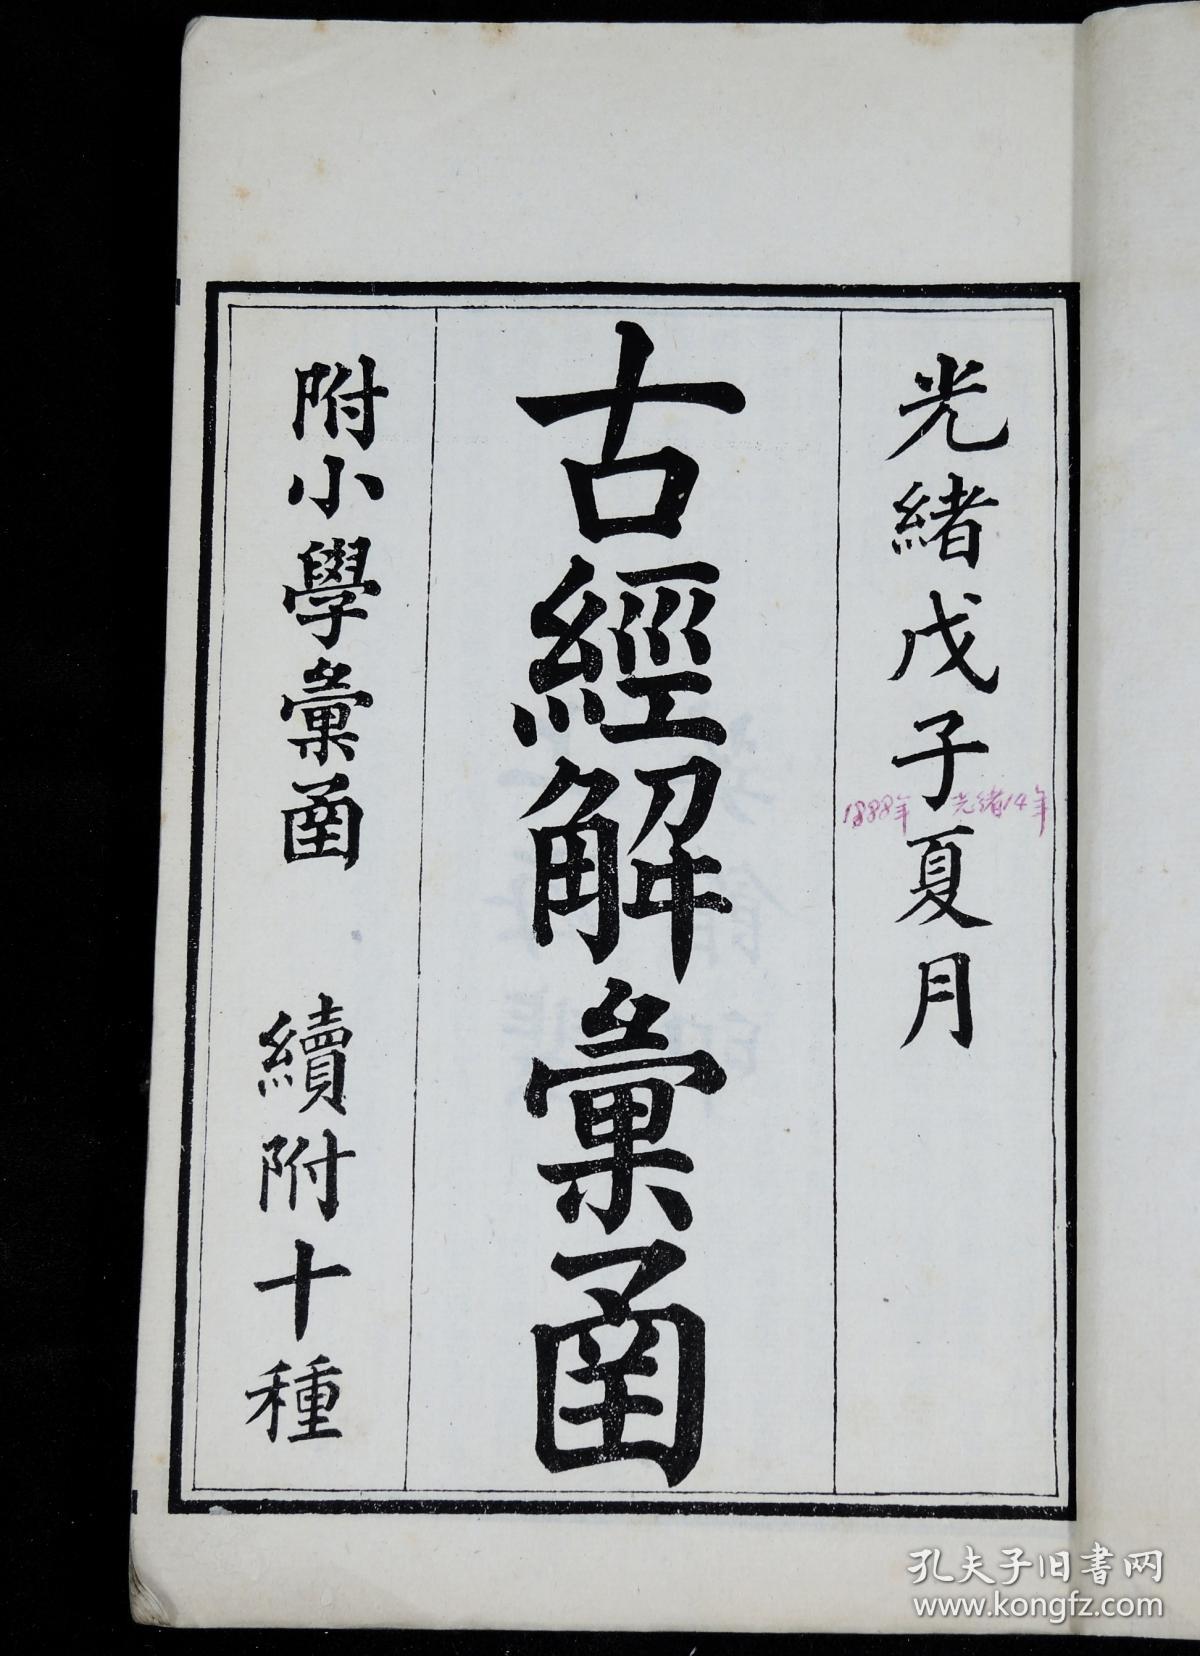 光緒戊子夏月
1888年 光緒14年
古經解彙函
附小學彙函 續附十種
孔夫子旧书网
www.kongfz.com